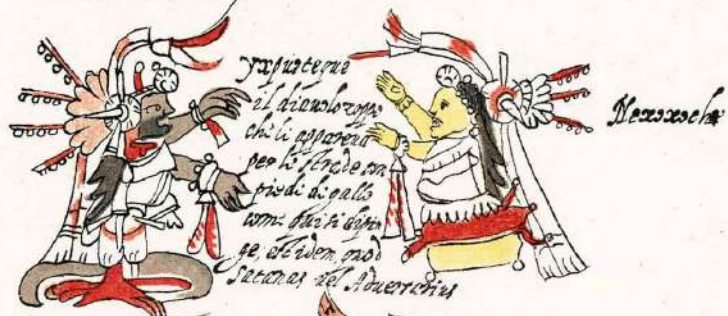 yxpuzteque
il diauolo zoppo
che li apparena
per le strade con
piedi di gallo
come qui si dipin
ge, est idem, quod
Satanas uel Aduersarius
Nexoxoche